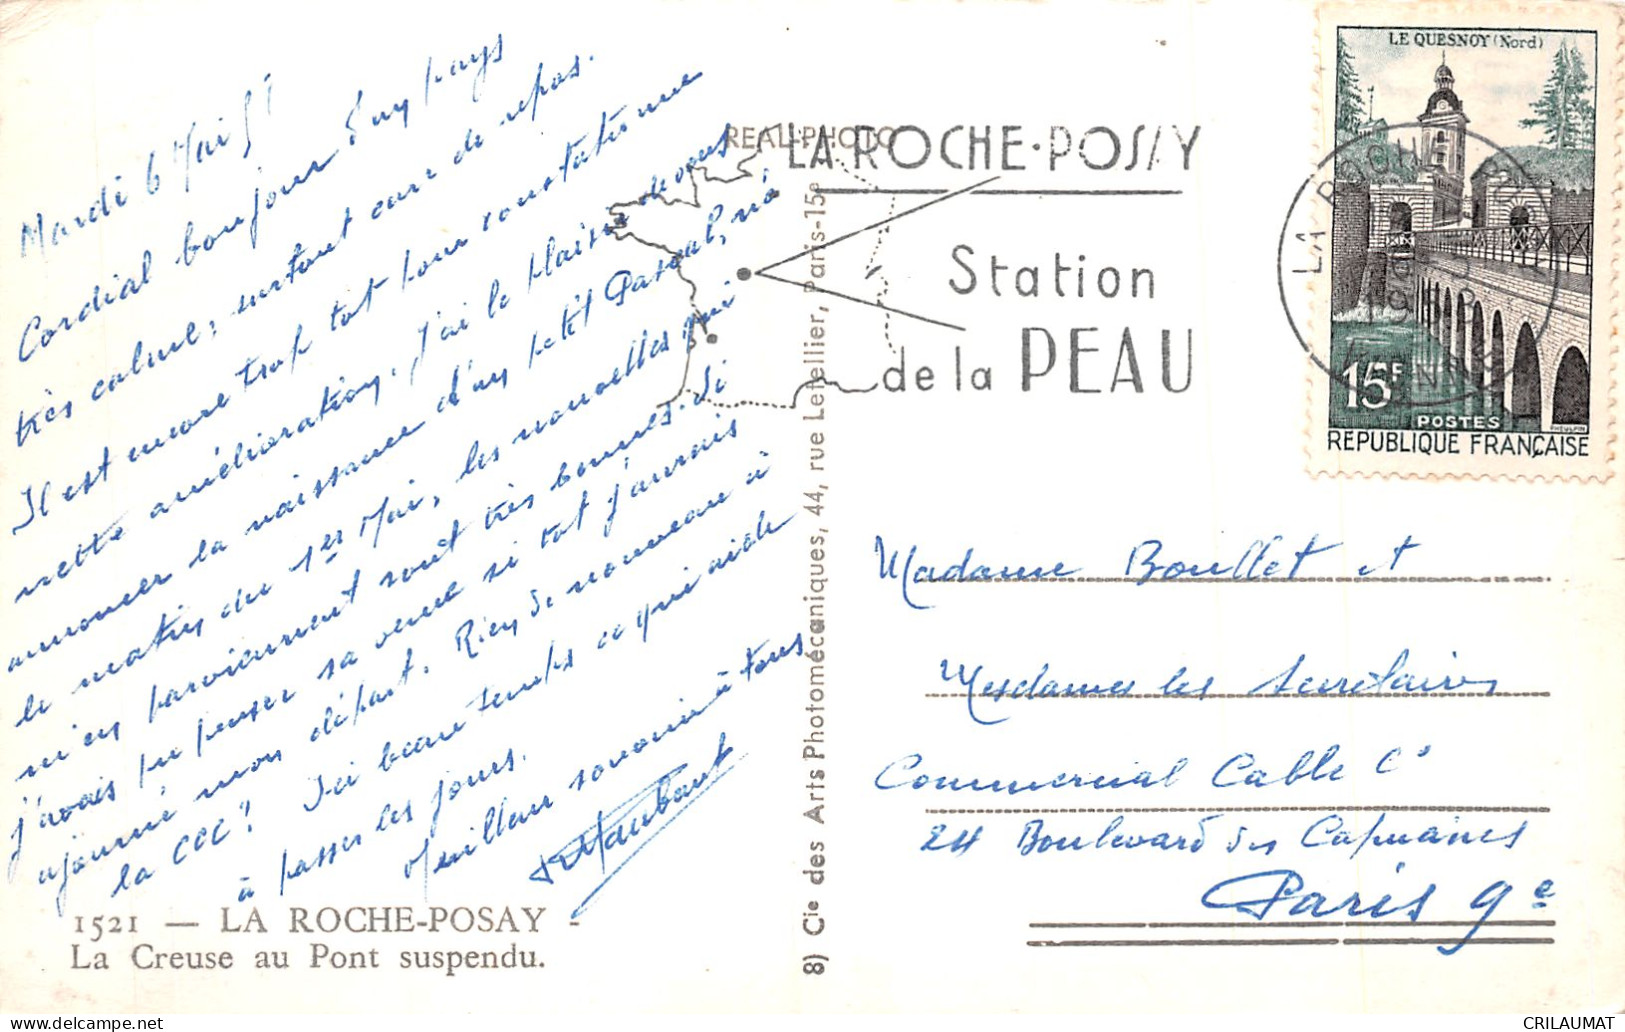 Mardi 6 Mai 5
Cordial bonjour d'un pays
très calme, surtout cure de repos.
Il est encore trop tôt pour constater une
nette amélioration. J'ai le plaisir de vous
annoncer la naissance d'un petit Pascal, né
le matin du 1er Mai, les nouvelles qui
m'en parviennent sont très bonnes. Si
j'avais pu penser sa venue si tôt j'aurais
ajourné mon départ. Rien de nouveau à
la CCC? Ici beau temps ce qui aide
à passer les jours.
Meilleur souvenir à tous
Maubant
1521 — LA ROCHE-POSAY -
La Creuse au Pont suspendu.
REAL-PHOTO
8) Cie des Arts Photomécaniques, 44, rue Letellier, Paris-15e
LA ROCHE·POSAY
Station
de la PEAU
LE QUESNOY (Nord)
15F
POSTES
PHEULPIN
REPUBLIQUE FRANÇAISE
LA ROCHE
Madame Boullet et
Mesdames les Secrétaires
Commercial Cable Co
24 Boulevard des Capucines
Paris 9e
CRILAUMAT